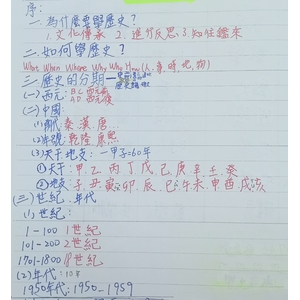 序:
一.為什麼要學歷史?
1.文化傳承 2.進行反思 3.知往鑑來
二.如何學歷史?
What When Where Why Who How(人,事,時,地,物)
三.歷史的分期
(一)西元:BC西元前
AD西元後
(二)中國:
(1)朝代 秦漢唐
(2)年號:乾隆康熙
(3)天干地支:一甲子=60年
①天干:甲.乙.丙丁戊己庚辛壬癸
②地支:子.丑.寅.卯.辰.巳.午.未.申.酉.戌.亥
(三)世紀、年代
(1)世紀:
1-100 1世紀
101-200 2世紀
1701-1800 18世紀
(2)年代:10年
1950年代:1950-1959